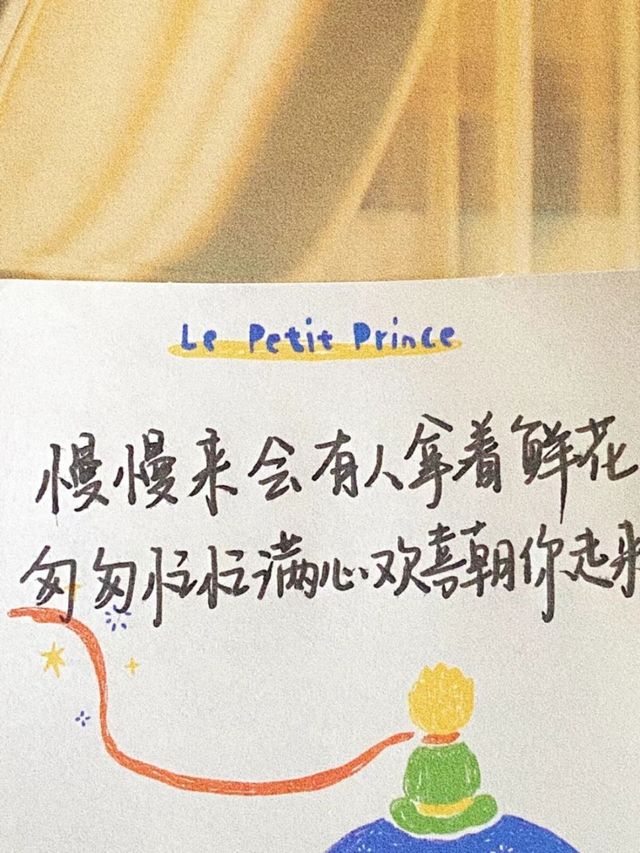 Le Petit Prince
慢慢来会有人拿着鲜花
匆匆忙忙满心欢喜朝你走来